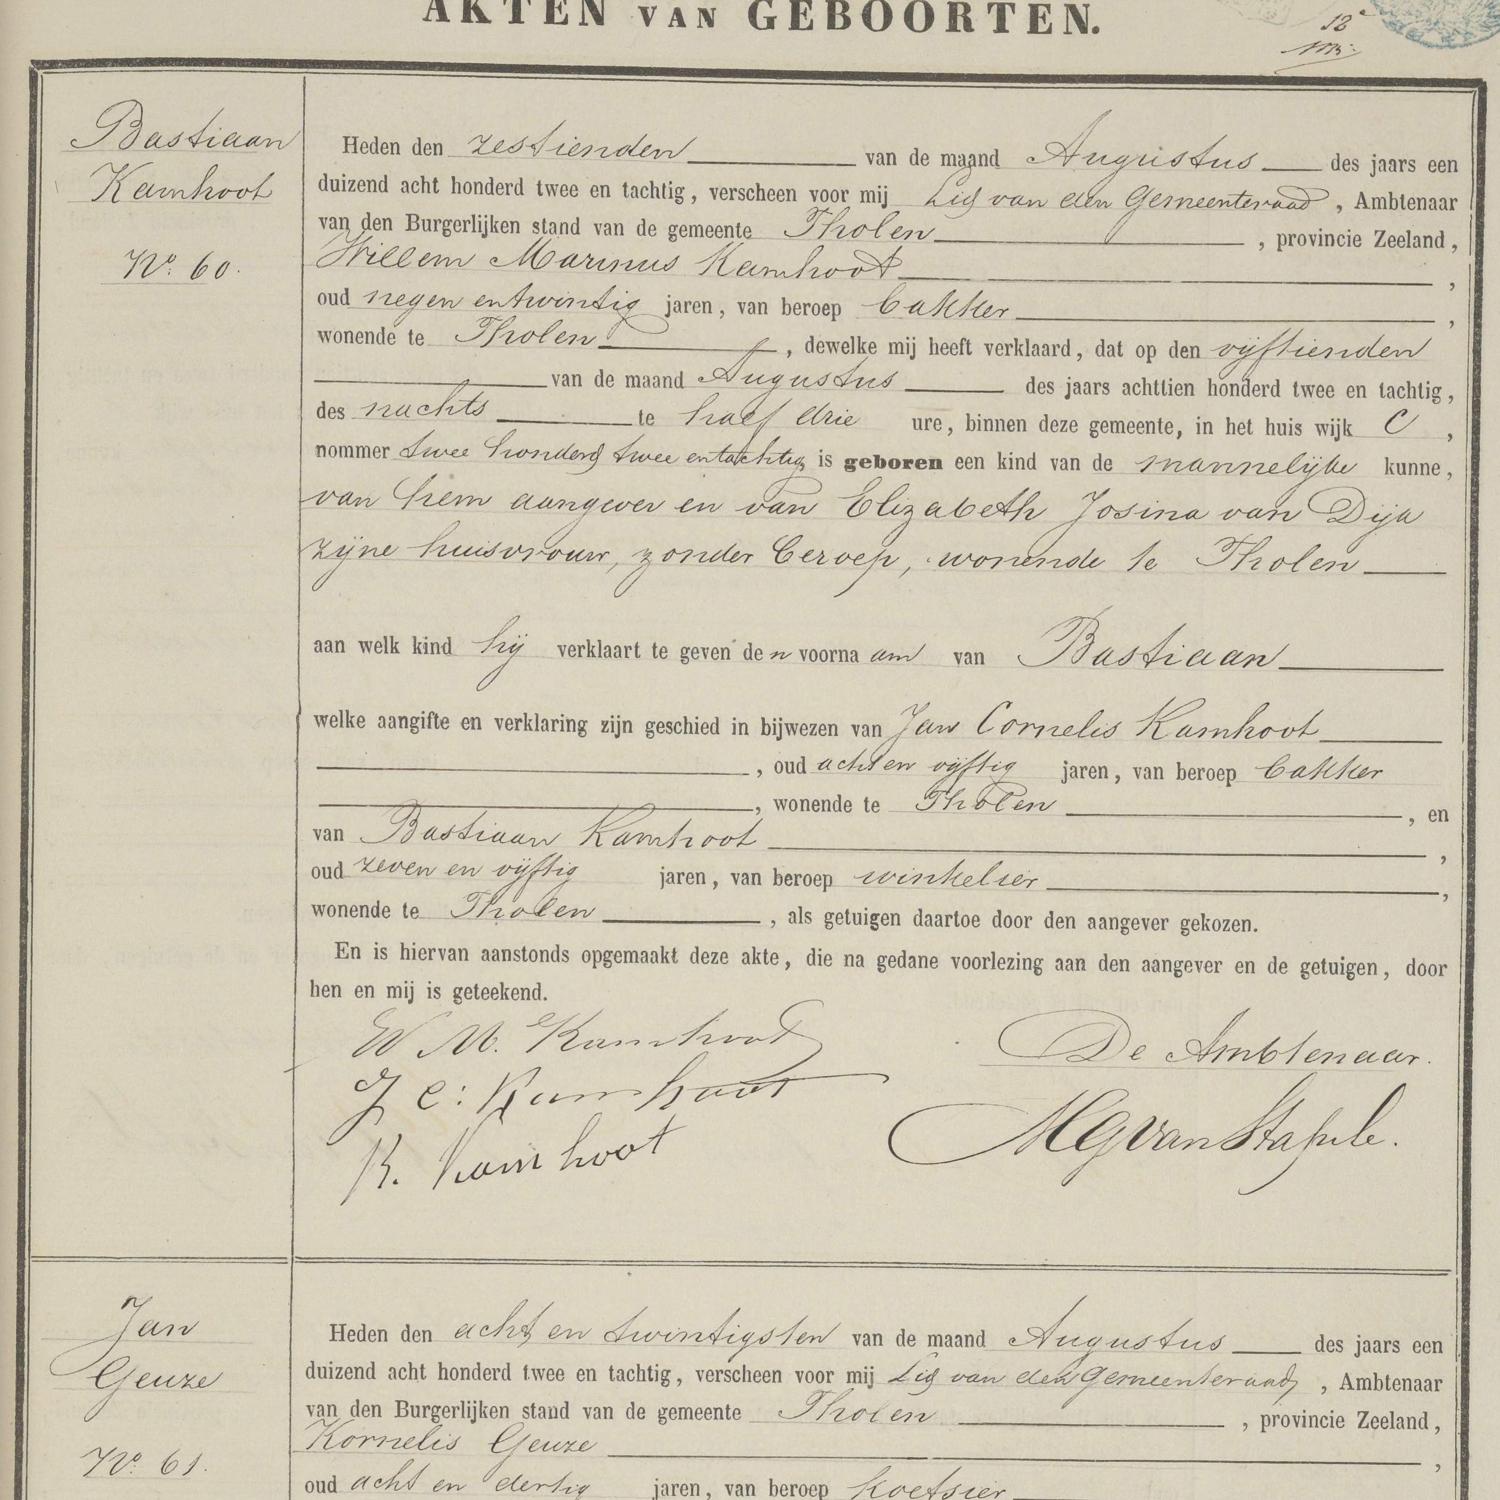 AKTEN VAN GEBOORTEN.
12e
Bastiaan
Kamhoot
No. 60.
Heden den zestienden van de maand Augustus des jaars een
duizend acht honderd twee en tachtig, verscheen voor mij Lid van den Gemeenteraad, Ambtenaar
van den Burgerlijken stand van de gemeente Tholen, provincie Zeeland,
Willem Marinus Kamhoot,
oud negen en twintig jaren, van beroep bakker,
wonende te Tholen, dewelke mij heeft verklaard, dat op den vijftienden
van de maand Augustus des jaars achttien honderd twee en tachtig,
des nachts te half drie ure, binnen deze gemeente, in het huis wijk C,
nommer twee honderd twee entachtig is geboren een kind van de mannelijke kunne,
van hem aangever en van Elizabeth Josina van Dijk
zijne huisvrouw, zonder beroep, wonende te Tholen
aan welk kind hij verklaart te geven den voornaam van Bastiaan
welke aangifte en verklaring zijn geschied in bijwezen van Jan Cornelis Kamhoot
, oud acht en vijftig jaren, van beroep bakker
, wonende te Tholen, en
van Bastiaan Kamhoot,
oud zeven en vijftig jaren, van beroep winkelier,
wonende te Tholen, als getuigen daartoe door den aangever gekozen.
En is hiervan aanstonds opgemaakt deze akte, die na gedane voorlezing aan den aangever en de getuigen, door
hen en mij is geteekend.
W M. Kamhoot
J C: Kamhoot
B. Kamhoot
De Ambtenaar.
MGvanStapele.
Jan
Geuze
No. 61.
Heden den acht en twintigsten van de maand Augustus des jaars een
duizend acht honderd twee en tachtig, verscheen voor mij Lid van den Gemeenteraad, Ambtenaar
van den Burgerlijken stand van de gemeente Tholen, provincie Zeeland,
Kornelis Geuze,
oud acht en dertig jaren, van beroep koetsier